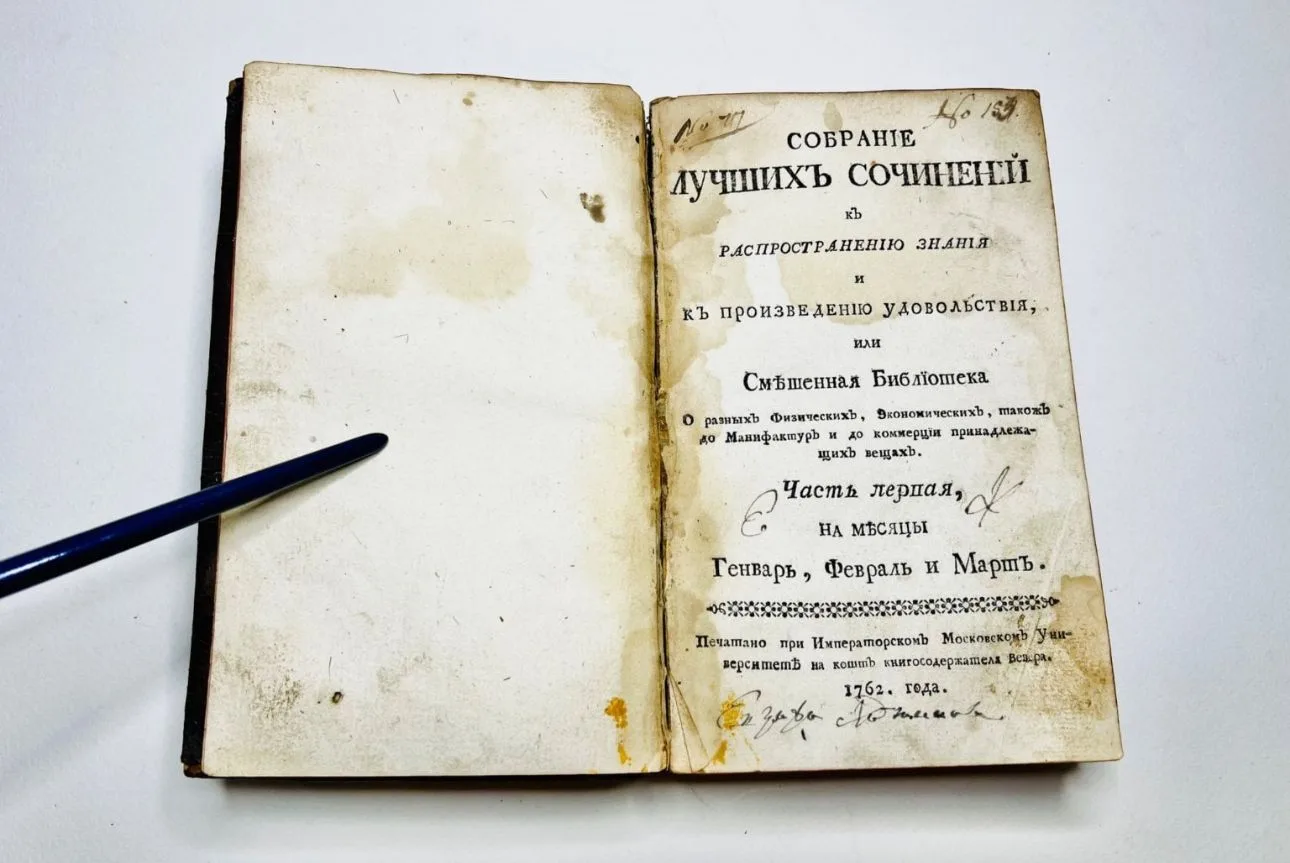 No 717
No 159.
СОБРАНІЕ
ЛУЧШИХЪ СОЧИНЕНІЙ
къ
РАСПРОСТРАНЕНІЮ ЗНАНІЯ
и
КЪ ПРОИЗВЕДЕНІЮ УДОВОЛЬСТВІЯ,
или
Смѣшенная Библїотека
О разныхъ Физическихъ, Экономическихъ, також�� до Манифактуръ и до коммерціи принадлежа-
щихъ вещахъ.
Часть первая,
НА МѢСЯЦЫ
Генварь, Февраль и Мартъ.
Печатано при Императорскомъ Московскомъ Уни-
верситетѣ на коштъ книгосодержателя Вевера.
1762. года.